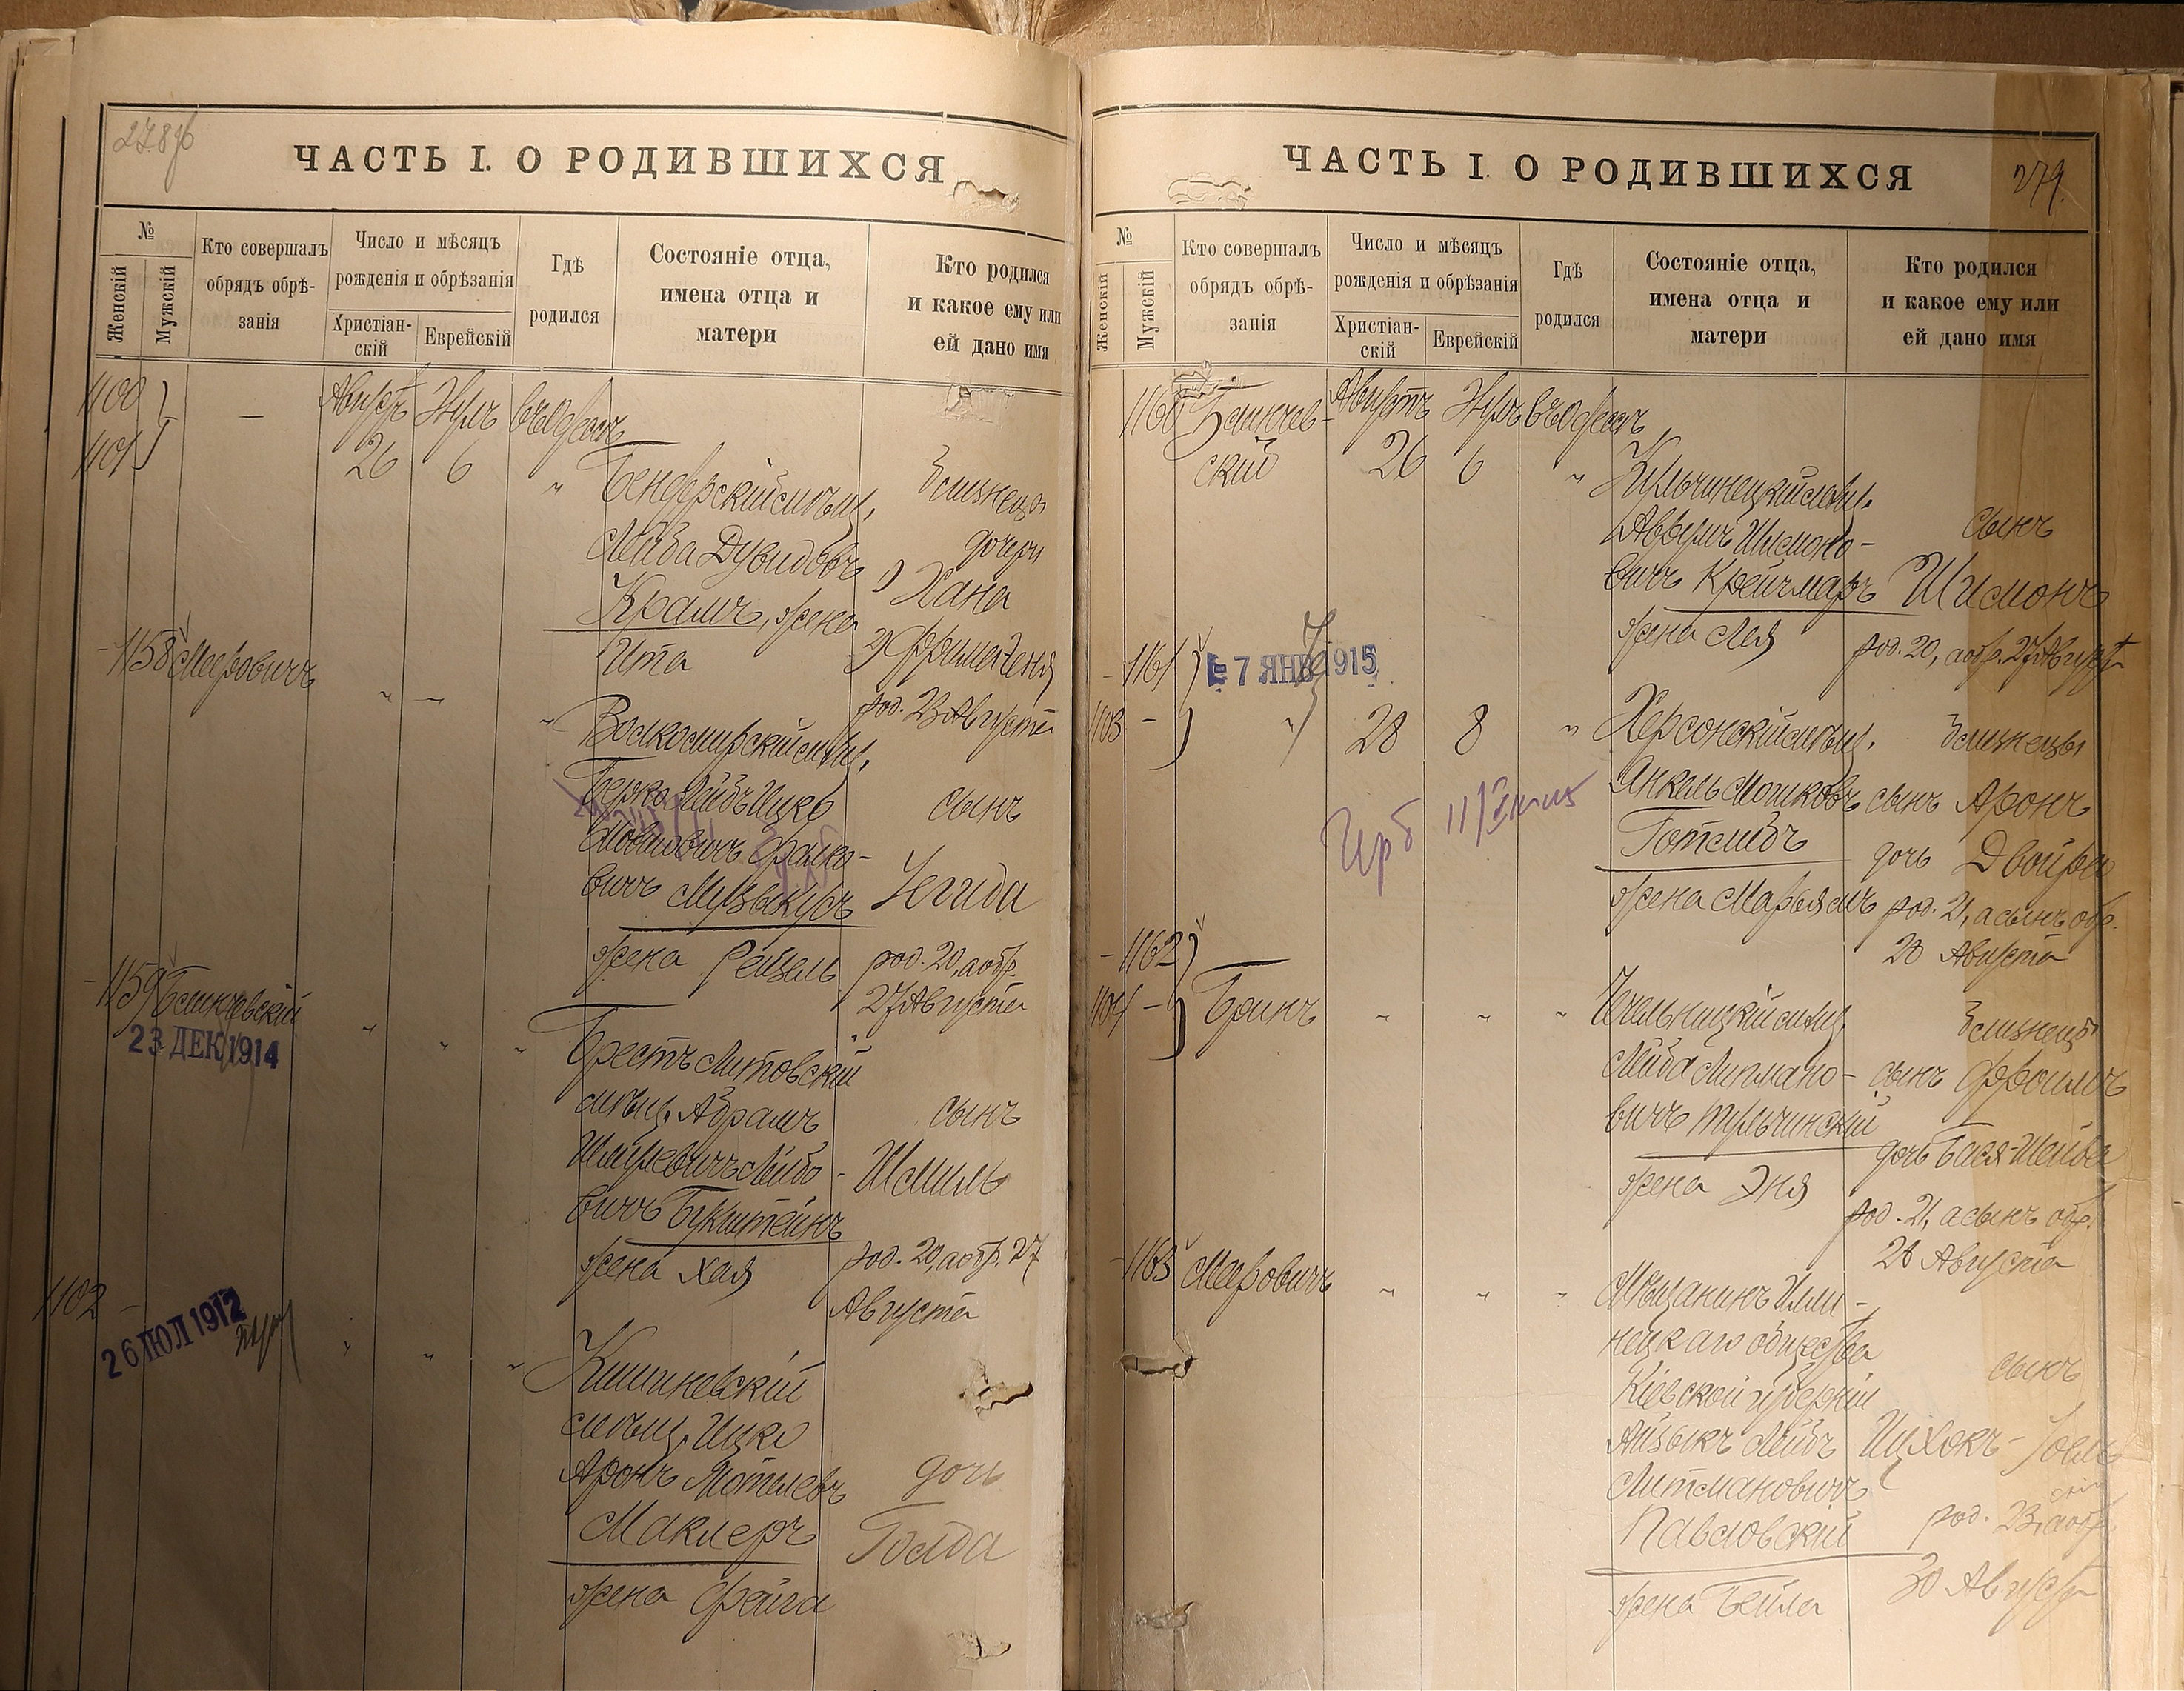 278 об
ЧАСТЬ I. О РОДИВШИХСЯ
№
Женскій
Мужскій
Кто совершалъ
обрядъ обрѣ-
занія
Число и мѣсяцъ
рожденія и обрѣзанія
Христіан-
скій
Еврейскій
Гдѣ
родился
Состояніе отца,
имена отца и
матери
Кто родился
и какое ему или
ей дано имя
1100
1101
—
Августъ
26
6
въ Одессѣ
"
Бендерскій мѣщ.
Лейба Дувидовъ
Крамъ, жена
Ита
Близнецы
дочери
1) Хана
2)
род. 23 Августа
1158 Мееровичъ
" —
"
Волкомирскій мѣщ.
Берко Лейбъ Ицко
Мовшовичъ Фалко-
вичъ Музыкусъ
жена Рейзель
сынъ
род. 20, а обр.
27 Августа
1159 Блинчевскій
23 ДЕК 1914
" " "
Брестъ Литовскій
мѣщ. Абрамъ
Шмулевичъ Лейбо-
вичъ Букштейнъ
жена Хая
сынъ
Шмиль
род. 20, а обр. 27
Августа
1102 –
26 ИЮЛ 1912
" " "
Кишиневскій
мѣщ. Ицко
Аронъ Мотелевъ
Маклеръ
жена Фейга
дочь
Голда
279.
ЧАСТЬ I. О РОДИВШИХСЯ
№
Женскій
Мужскій
Кто совершалъ
обрядъ обрѣ-
занія
Число и мѣсяцъ
рожденія и обрѣзанія
Христіан-
скій
Еврейскій
Гдѣ
родился
Состояніе отца,
имена отца и
матери
Кто родился
и какое ему или
ей дано имя
1160 Блинчев-
скій
Августъ
26
6
въ Одессѣ
"
мѣщ.
Шимоно-
вичъ Крейчмаръ
жена Лея
сынъ
Шимонъ
род. 20, а обр. 27 Август
1161
7 ЯНВ 1915
1103 –
" 28 8 "
Херсонскій мѣщ.
Янкель Мошковъ
Готлибъ
жена Марьямъ
Близнецы
сынъ Аронъ
дочь Двойра
род. 21, а сынъ обр.
28 Августа
1162
1104 – Бринъ
" " "
Чечельницкій мѣщ.
Лейба Липмано-
вичъ Тульчинскій
жена Эня
Близнецы
сынъ Фроимъ
дочь Бася-Шейва
род. 21, а сынъ обр.
28 Августа
1163 Мееровичъ
" " "
Мѣщанинъ Илли-
нецкаго общества
Кіевской губерніи
Айзыкъ Лейбъ
Литмановичъ
Павловскій
жена Бейла
сынъ
Ицхокъ-Іоель
род. 23, а обр.
30 Август